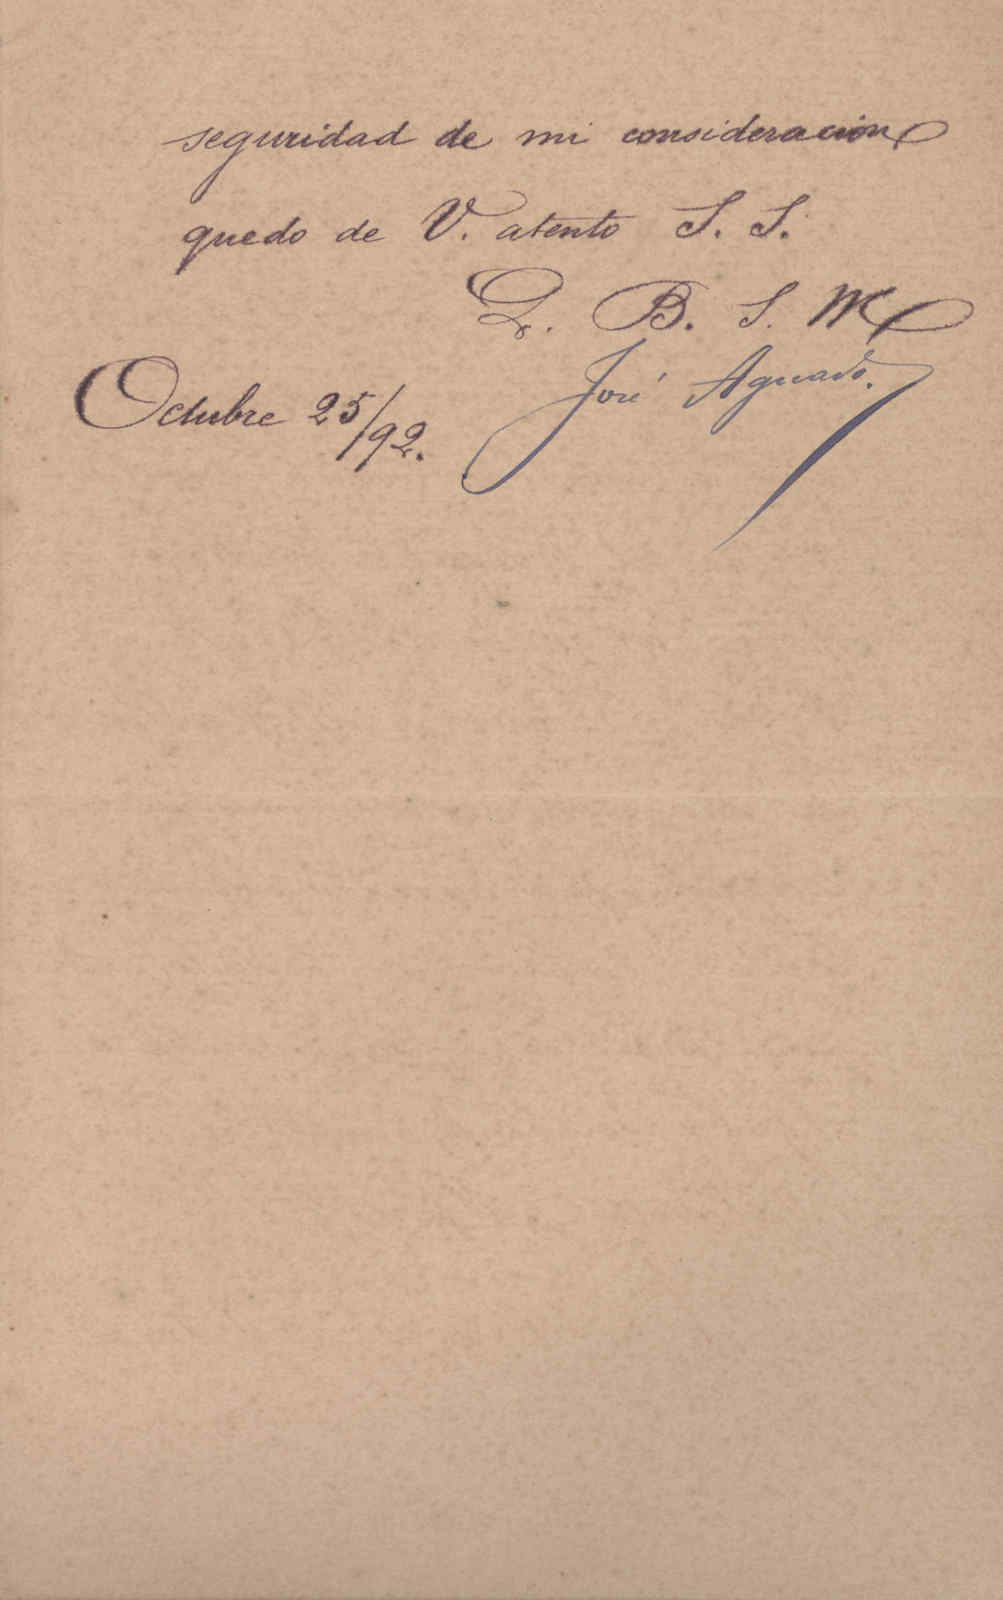 seguridad de mi consideración
quedo de V. atento S. S.
Q. B. S. M
José Aguado.
Octubre 25/92.